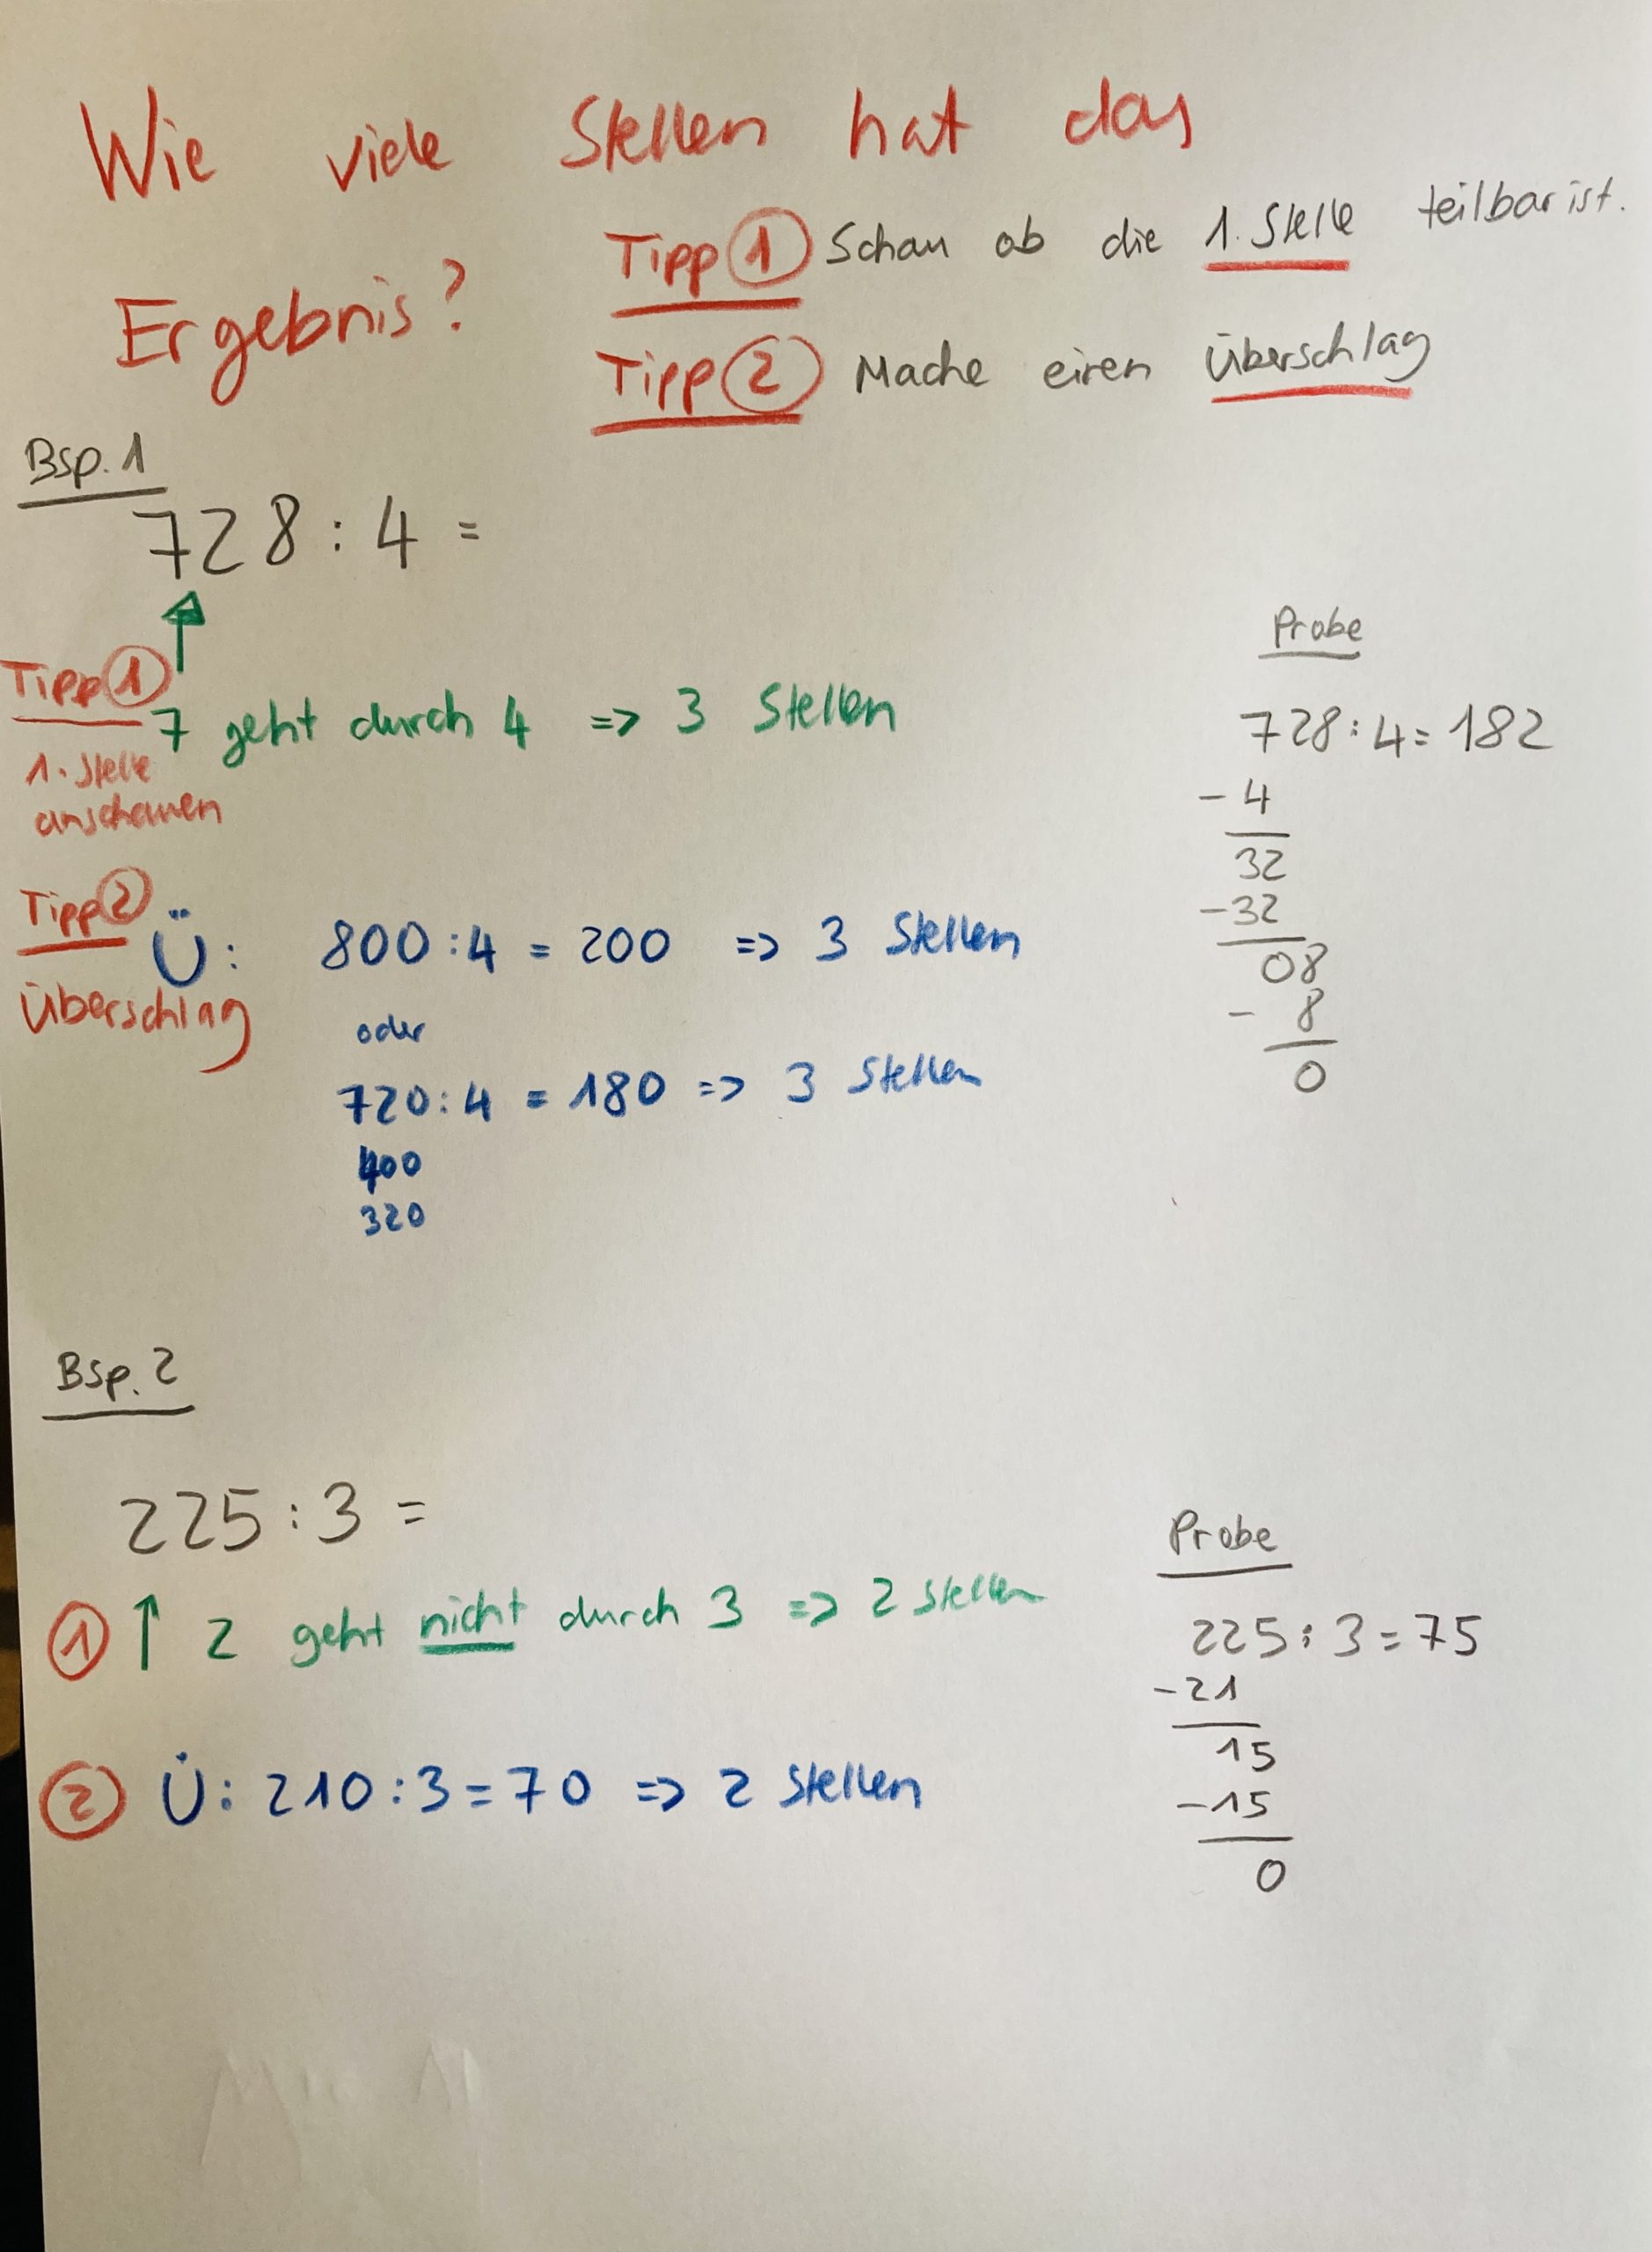 Wie viele Stellen hat das
Ergebnis?
Tipp 1 Schau ob die 1. Stelle teilbar ist.
Tipp 2 Mache einen Überschlag
Bsp. 1
728 : 4 =
Tipp 1
7 geht durch 4 => 3 Stellen
1. Stelle
anschauen
Tipp 2
Ü: 800 : 4 = 200 => 3 Stellen
Überschlag
oder
720 : 4 = 180 => 3 Stellen
400
320
Probe
728 : 4 = 182
- 4
32
- 32
08
- 8
0
Bsp. 2
225 : 3 =
1 2 geht nicht durch 3 => 2 Stellen
2 Ü: 210 : 3 = 70 => 2 Stellen
Probe
225 : 3 = 75
- 21
15
- 15
0